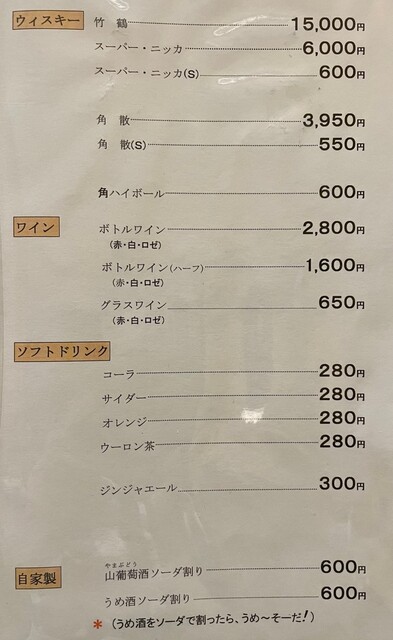 ウィスキー 竹 鶴 15,000円
スーパー・ニッカ 6,000円
スーパー・ニッカ(S) 600円
角 散 3,950円
角 散(S) 550円
角ハイボール 600円
ワイン ボトルワイン 2,800円
(赤・白・ロゼ)
ボトルワイン(ハーフ) 1,600円
(赤・白・ロゼ)
グラスワイン 650円
(赤・白・ロゼ)
ソフトドリンク
コーラ 280円
サイダー 280円
オレンジ 280円
ウーロン茶 280円
ジンジャエール 300円
やまぶどう
自家製 山葡萄酒ソーダ割り 600円
うめ酒ソーダ割り 600円
* (うめ酒をソーダで割ったら、うめ〜そーだ!)